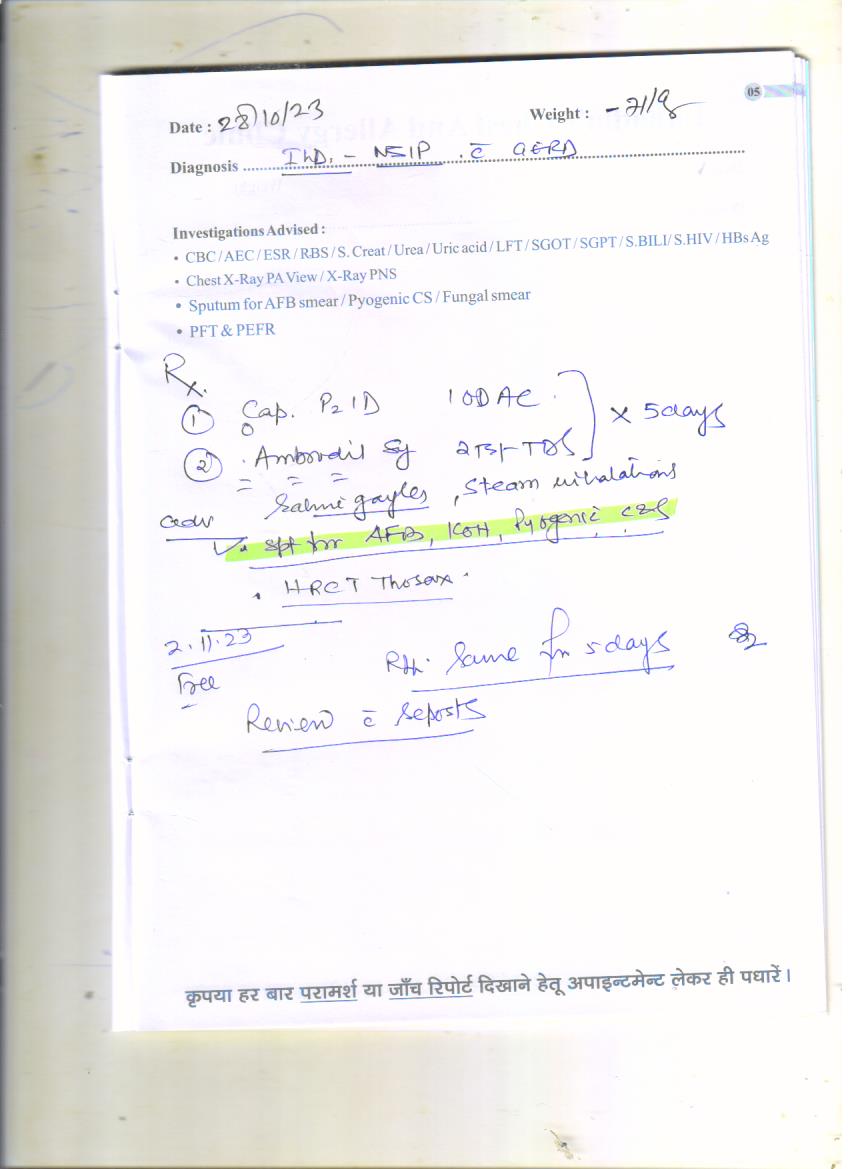 05
Date : 28/10/23 Weight : -71/9
Diagnosis ILD. - NSIP . c̄ GERD
Investigations Advised :
• CBC / AEC / ESR / RBS / S. Creat / Urea / Uric acid / LFT / SGOT / SGPT / S.BILI/ S.HIV / HBs Ag
• Chest X-Ray PA View / X-Ray PNS
• Sputum for AFB smear / Pyogenic CS / Fungal smear
• PFT & PEFR
Rx.
① Cap. 1 OD AC.
② Ambrodil Sy 2 TSF TDS × 5 days
adv Saline gargles, Steam inhalations
✓ • Spt for AFB, KOH, Pyogenic C&S
• HRCT Thorax.
2.11.23
Free Same for 5 days
Review c̄ reports
कृपया हर बार परामर्श या जाँच रिपोर्ट दिखाने हेतू अपाइन्टमेन्ट लेकर ही पधारें।